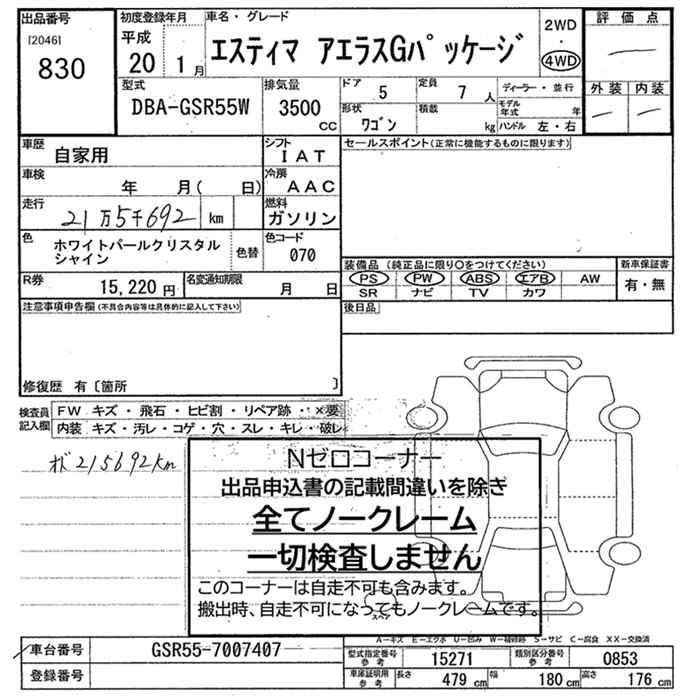 出品番号 [2046] 830
初度登録年月 平成 20 1月
車名・グレード エスティマ アエラスGパッケージ
2WD・4WD
評価点 ―
外装 ― 内装 ―
型式 DBA-GSR55W
排気量 3500 CC
ドア 5
定員 7人
形状 ワゴン
積載 kg
ディーラー・並行
モデル年式 年
ハンドル 左・右
車歴 自家用
シフト IAT
セールスポイント(正常に機能するものに限ります)
車検 年 月( 日)
冷房 AAC
走行 21万5千692 km
燃料 ガソリン
色 ホワイトパールクリスタルシャイン
色替
色コード 070
R券 15,220円
名変通知期限 月 日
装備品(純正品に限り○をつけてください)
PS PW ABS エアB AW
SR ナビ TV カワ
新車保証書 有・無
注意事項申告欄(不具合内容等は具体的に記入して下さい)
後日品
修復歴 有〔箇所 〕
検査員記入欄
FW キズ・飛石・ヒビ割・リペア跡・×要
内装 キズ・汚レ・コゲ・穴・スレ・キレ・破レ
215692km
Nゼロコーナー
出品申込書の記載間違いを除き
全てノークレーム
一切検査しません
このコーナーは自走不可も含みます。
搬出時、自走不可になってもノークレームです。
スペア
A-キズ E-エクボ U-凹み W-補修跡 S-サビ C-腐食 XX-交換済
車台番号 GSR55-7007407
登録番号
型式指定番号 参考 15271
類別区分番号 参考 0853
車庫証明用 参考 長さ 479cm 幅 180cm 高さ 176cm